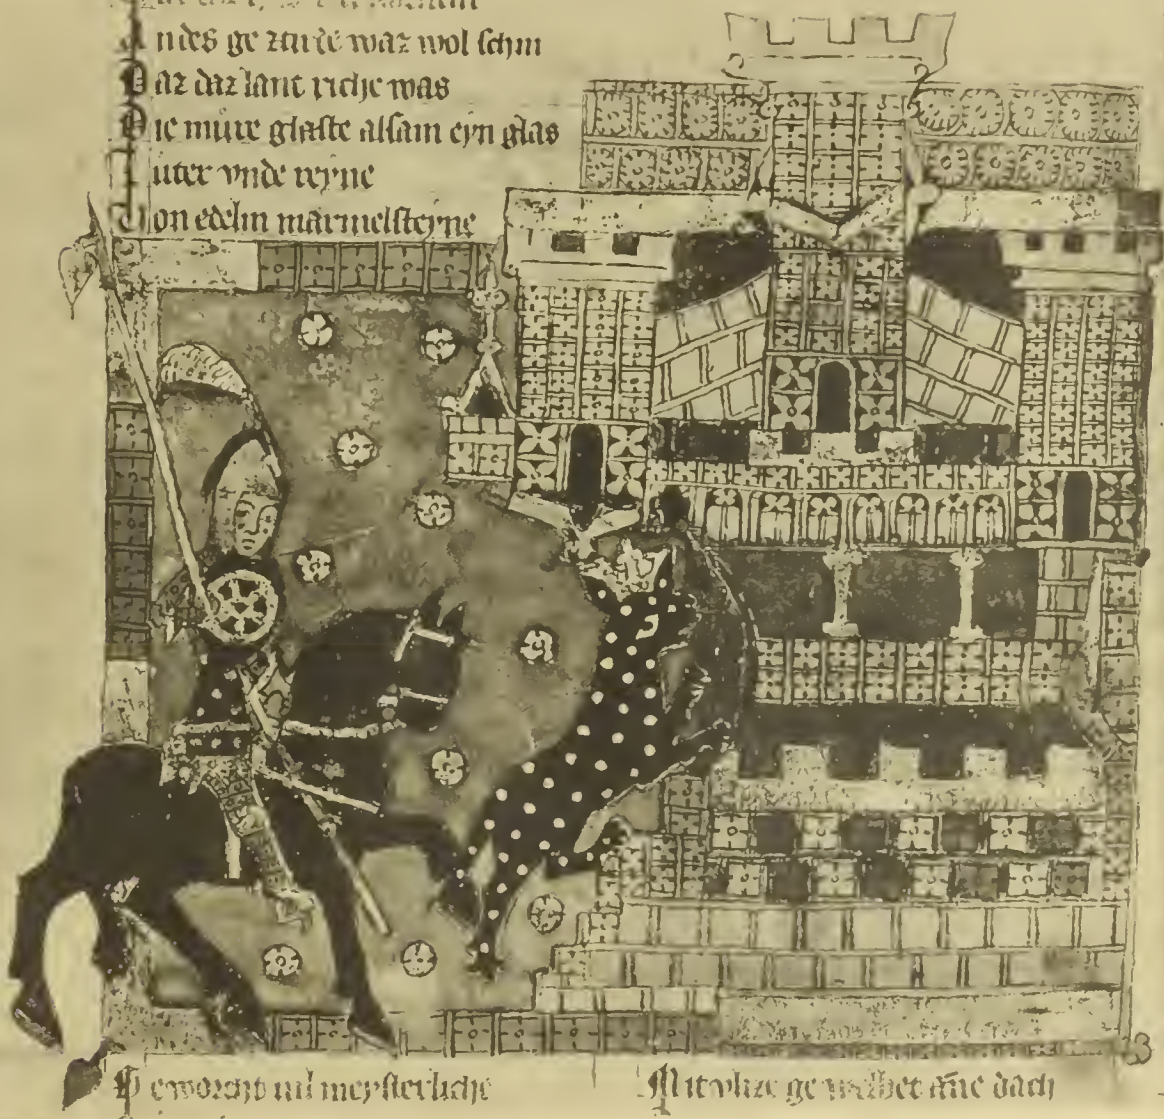 Andes ge zcirde waz wol schin
Daz daz lant riche was
Die mure glaste alsam eyn glas
luter vnde reyne
Von edelm marmelsteyne
Geworcht vil meysterliche
Mit vlize ge welbet ane dach